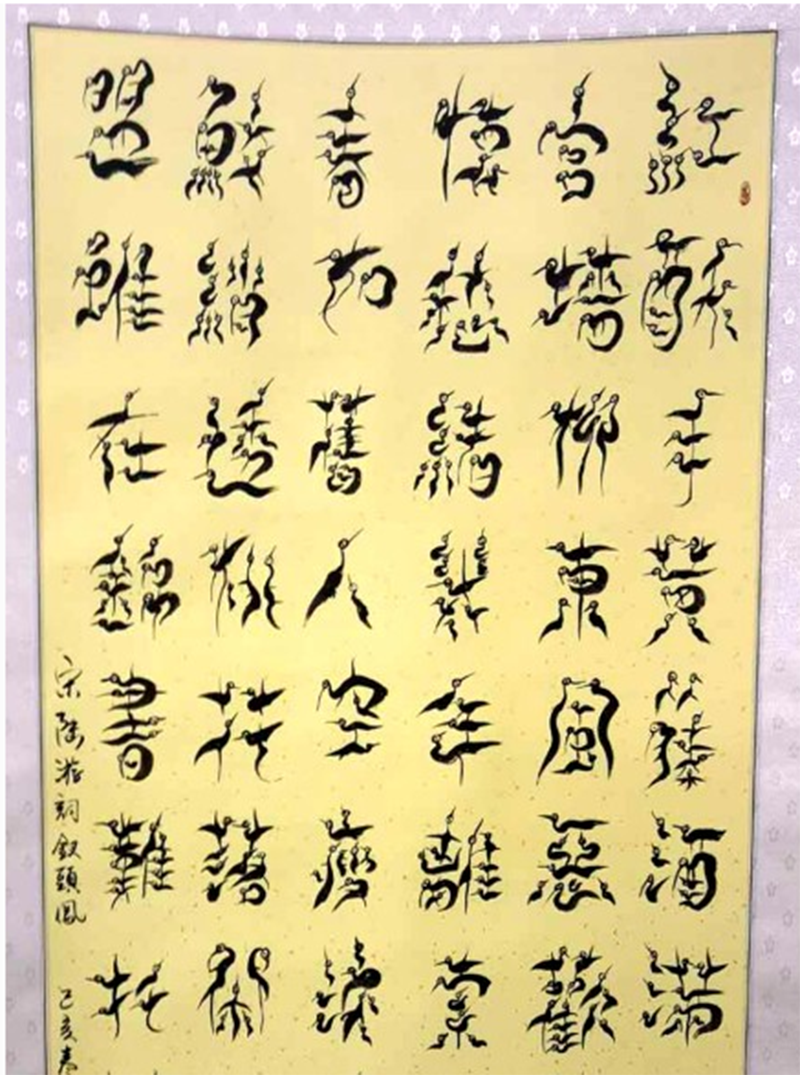 紅酥手黃藤酒滿
宮牆柳東風惡歡
懷愁緒幾年離索
春如舊人空瘦淚
鮫綃透桃花落閑
盟雖在錦書難托
宋陸游詞釵頭鳳 己亥春